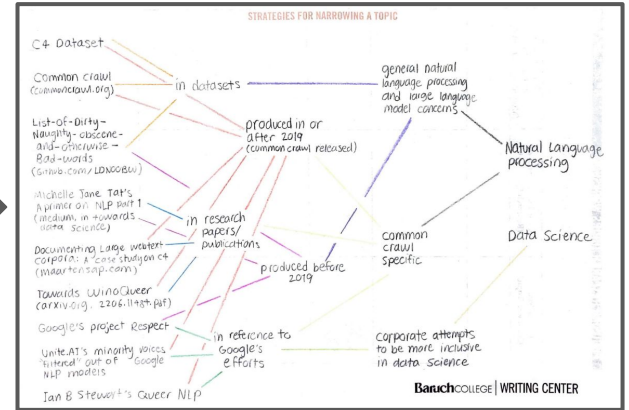 STRATEGIES FOR NARROWING A TOPIC
C4 Dataset
Common crawl
(commoncrawl.org)
List-Of-Dirty-
Naughty-obscene-
and-otherwise-
Bad-words
(Github.com/LDNOOBW)
Michelle Jane Tat's
A primer on NLP part 1
(medium, in towards
data science)
Documenting Large Webtext
Corpora: A case study on C4
(maartensap.com)
Towards WinoQueer
(arxiv.org, 2206.11484.pdf)
Google's project Respect
Unite.AI's minority voices
"filtered" out of Google
NLP models
Ian B Stewart's Queer NLP
in datasets
produced in or
after 2019
(common crawl released)
in research
papers/
publications
produced before
2019
in reference to
Google's
efforts
general natural
language processing
and large language
model concerns
common
crawl
specific
corporate attempts
to be more inclusive
in data science
Natural Language
processing
Data Science
Baruch COLLEGE | WRITING CENTER